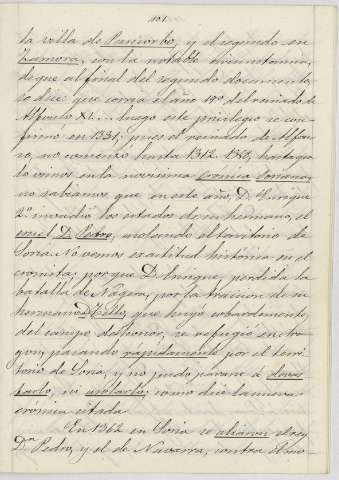 101.
la villa de Pancorbo, y el segundo en
Zamora, con la notable circunstancia,
de que al final del segundo documento
se dice: que corria el año 19º del reinado de
Alfonso XI.... luego este privilegio se con-
firmó en 1331; pues el reinado de Alfon-
so, no comenzó hasta 1312.
lo vimos en la novisima Cronica Soriana,
no sabiamos que en este año, D. Enrique
2º invadió los estados de su hermano, el
cruel D. Pedro, asolando el territorio de
Soria. No vemos exactitud histórica en el
cronista; porque D. Enrique, perdida la
batalla de Nágera, por la traicion de su
hermano D. Tello, que huyó cobardemente
del campo del honor, se refugió en Ara-
gon, pasando rapidamente por el terri-
torio de Soria, y no pudo pararse á
ni asolarlo; como dice la nueva
crónica citada.
En 1362 en Soria se aliaron el rey
Dn Pedro, y el de Navarra, contra el mo-